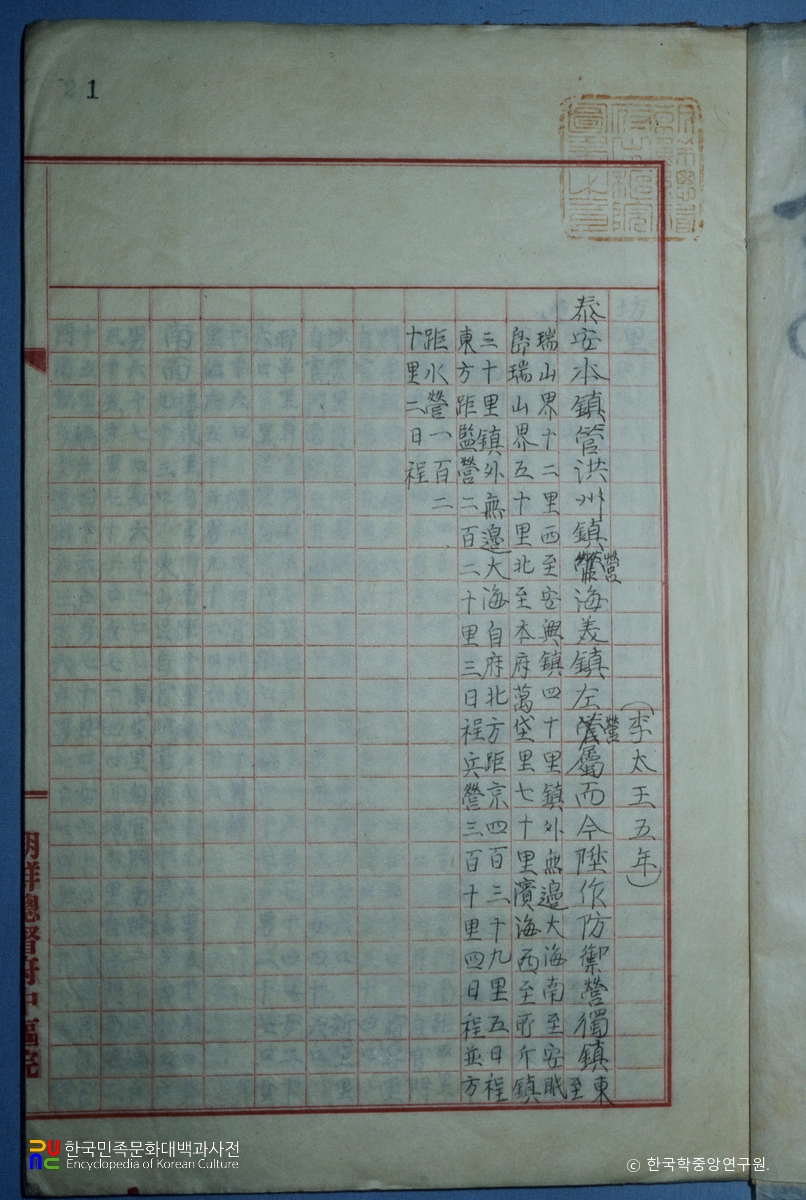 1
朝鮮總督府中樞院圖書之章
(李太王五年)
泰安本鎮管洪州鎮營海美鎮左營屬而今陞作防禦營獨鎮東至
瑞山界十二里西至安興鎮四十里鎮外無邊大海南至安眠
島瑞山界五十里北至本府萬垈里七十里濱海西至所斤鎮
三十里鎮外無邊大海自府北方距京四百三十九里五日程
東方距監營二百二十里三日程兵營三百十里四日程並方
距水營一百二
十里二日程
朝鮮總督府中樞院
한국민족문화대백과사전
Encyclopedia of Korean Culture
ⓒ 한국학중앙연구원.